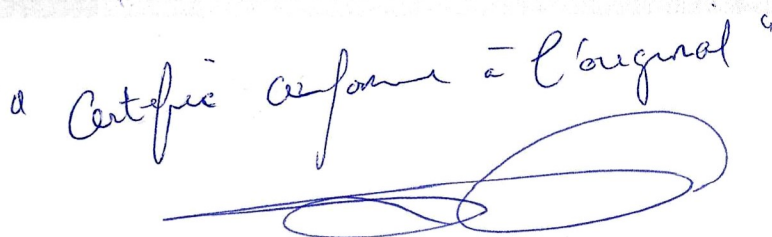 " Certifié conforme à l'original "